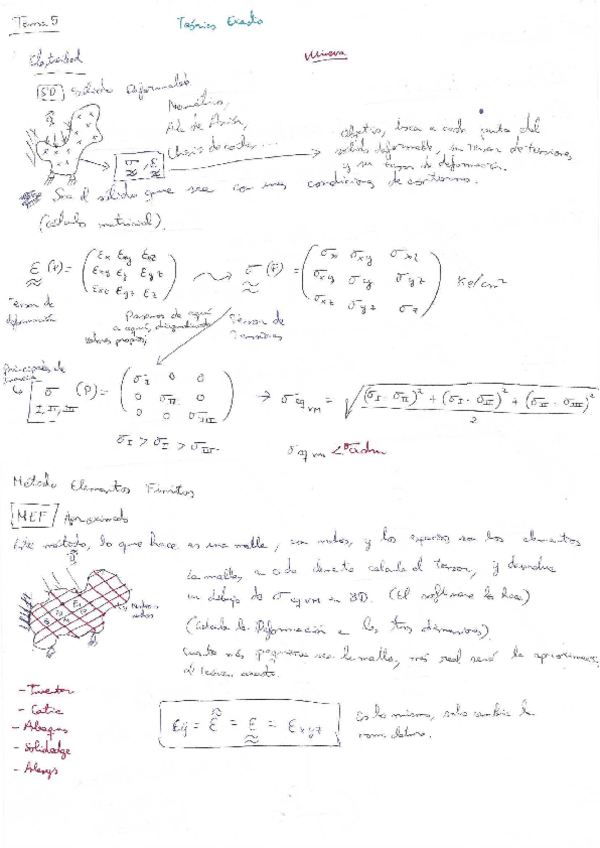 Tema 5
Teórico Exacto
Elasticidad
SD sólido Deformable
Neumático,
Ala de Avión,
Chasis de coche, ...
objetivo, busca a cada punto del
sólido deformable, su tensor de tensiones
y su tensor de deformación.
σ, ε
Sea el sólido que sea con unas condiciones de contorno.
(cálculo matricial).
ε (P) = (εx εxy εxz εxy εy εyz εxz εyz εz) σ (P) = (σx σxy σxz σxy σy σyz σxz σyz σz) Kg/cm²
Tensor de
deformación
Pasamos de aquí
a aquí, diagonalizando
valores propios
Tensor de
Tensiones
Principales de
σ I, II, III (P) = (σI 0 0 0 σII 0 0 0 σIII) → σeqVM = √((σI - σII)² + (σI - σIII)² + (σII - σIII)² / 2)
σI > σII > σIII
σeqVM < σadm
Método Elementos Finitos
MEF / Aproximado
Este método, lo que hace es una malla, son nodos, y los espacios son los elementos
la malla, a cada elemento calcula el tensor, y devuelve
un dibujo de σeqVM en 3D. (El software lo hace)
(Calcula la Deformación en las tres dimensiones)
cuanto más pequeña sea la malla, más real será la aproximación
- Inventor
- Catia
- Abaqus
- Solidedge
- Ansys
εij = ε = ε = εxyz
es lo mismo, solo cambia la
nomenclatura.